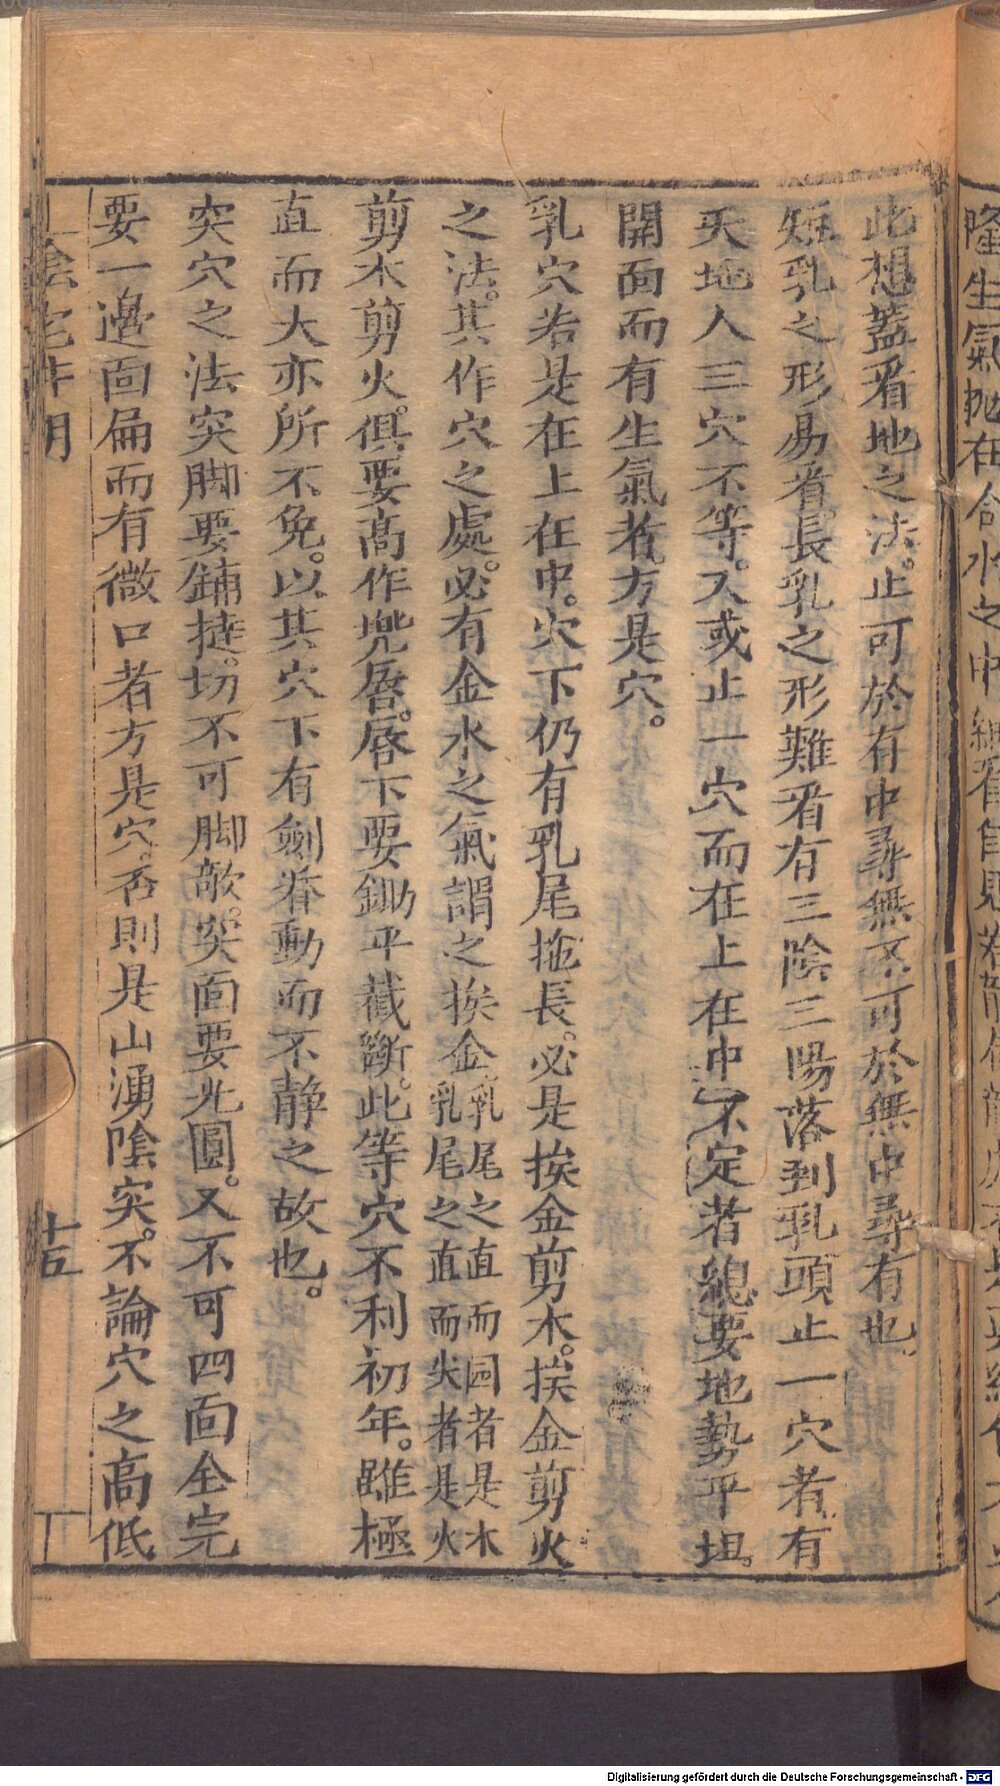 此想蓋看地之法。止可於有中尋無。不可於無中尋有也。
短乳之形易看。長乳之形難看。有三陰三陽落到乳頭止一穴者。有
天地人三穴不等。又或止一穴而在上在中不定者。總要地勢平坦。
開面而有生氣者。方是穴。
乳穴若是在上在中。穴下仍有乳尾拖長。必是挨金剪木。挨金剪火
之法。其作穴之處。必有金水之氣謂之挨金乳尾之直而园者是木乳尾之直而尖者是火
剪木剪火。俱要高作兜唇。唇下要鋤平截斷。此等穴不利初年。雖極
直而大亦所不免。以其穴下有劍脊動而不静之故也。
突穴之法突脚要鋪㨗。切不可脚敵。突面要光圓。又不可四面全完
要一邊面扁而有微口者方是穴。否則是山湧陰突。不論穴之高低
陰宅井明
十五
隆生氣抛在合水之中
Digitalisierung gefördert durch die Deutsche Forschungsgemeinschaft - DFG